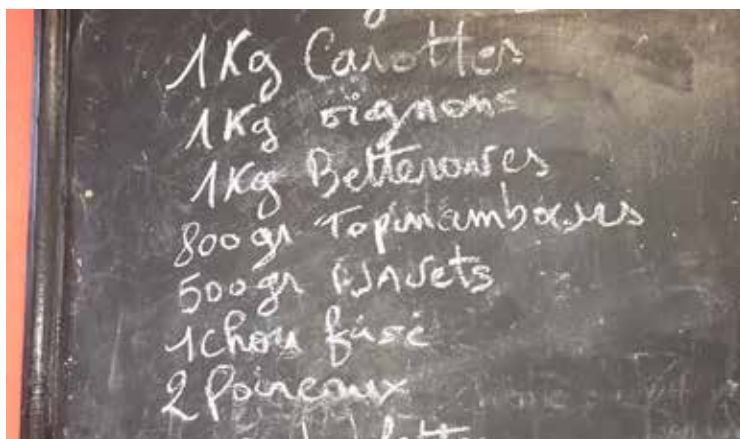 1Kg Carottes
1Kg oignons
1Kg Betteraves
800gr Topinambours
500gr Navets
1 chou frisé
2 Poireaux